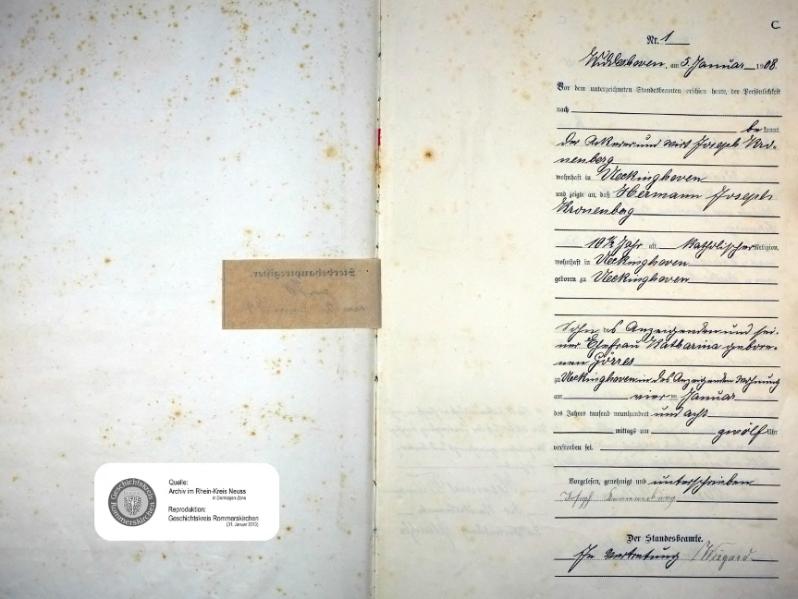 C.
Nr. 1
Widdeshoven, am 5. Januar 1908.
Vor dem unterzeichneten Standesbeamten erschien heute, der Persönlichkeit
nach
be kannt,
der Ackerer und Wirt Joseph Kro-
nenberg
wohnhaft in Ueckinghoven
und zeigte an, daß Hermann Joseph
Kronenberg
10½ Jahr alt, Katholischer Religion,
wohnhaft in Ueckinghoven
geboren zu Ueckinghoven
Sohn des Anzeigenden und sei-
ner Ehefrau Katharina gebore-
nen Görres
zu Ueckinghoven in des Anzeigenden Wohnung
am vier ten Januar
des Jahres tausend neunhundert und acht
mittags um zwölf Uhr
verstorben sei.
Vorgelesen, genehmigt und unterschrieben
Joseph Kronenberg
Der Standesbeamte.
In Vertretung
Sterbehauptregister.
Quelle:
Archiv im Rhein-Kreis Neuss
in Dormagen-Zons
Reproduktion:
Geschichtskreis Rommerskirchen
(31. Januar 2013)
Geschichtskreis
Rommerskirchen